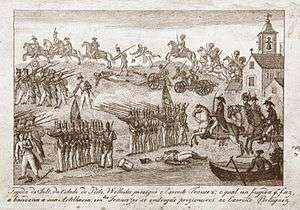 Fugida de Solt, da Cidade do Porto, Welleslei persegue o Exercito Francez, o qual na fugida q̃ faz,
a bandona a sua Artilheria, Francezes se entregaõ prizioneiros ao Exercito Portuguez